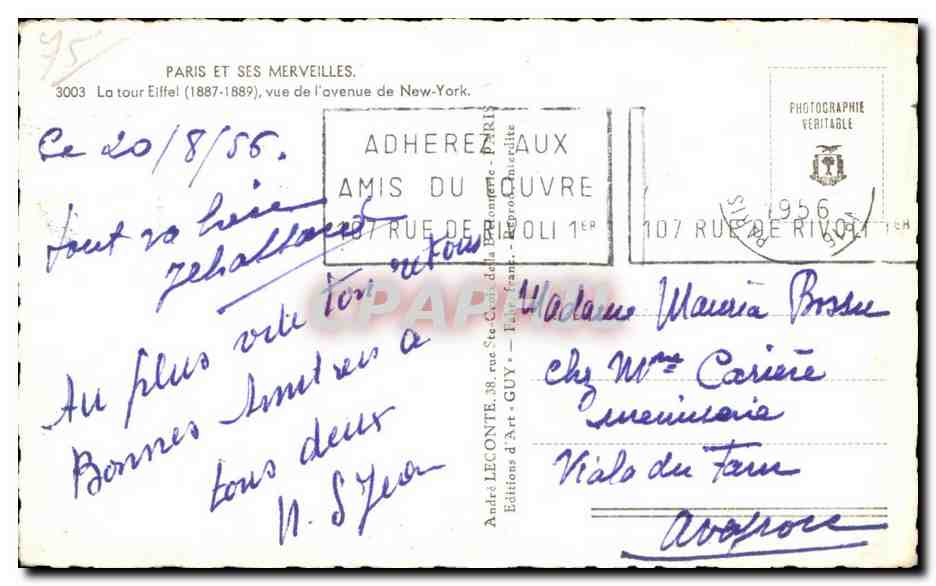 75
PARIS ET SES MERVEILLES.
3003 La tour Eiffel (1887-1889), vue de l'avenue de New-York.
Ce 20/8/56.
tout va bien
Au plus vite ton retour
Bonnes Amitiés à
tous deux
N. S Jean
André LECONTE, 38, rue Ste-Croix de la Bretonnerie - PARIS
Editions d'Art "GUY" - Fabr. franç. - Reprod. interdite
ADHEREZ AUX
AMIS DU LOUVRE
107 RUE DE RIVOLI 1ER
PHOTOGRAPHIE
VERITABLE
1956
PARIS
107 RUE DE RIVOLI 1ER
CPAPHIL
Madame Bossu
chez Mme Carière
Viala du Tarn
Aveyron